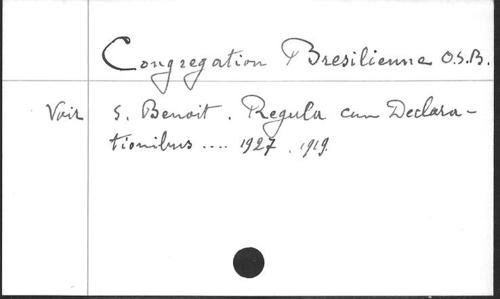 Congregation Bresilienne O.S.B.
Voir S. Benoit. Regula cum Declara-
tionibus .... 1927, 1919.